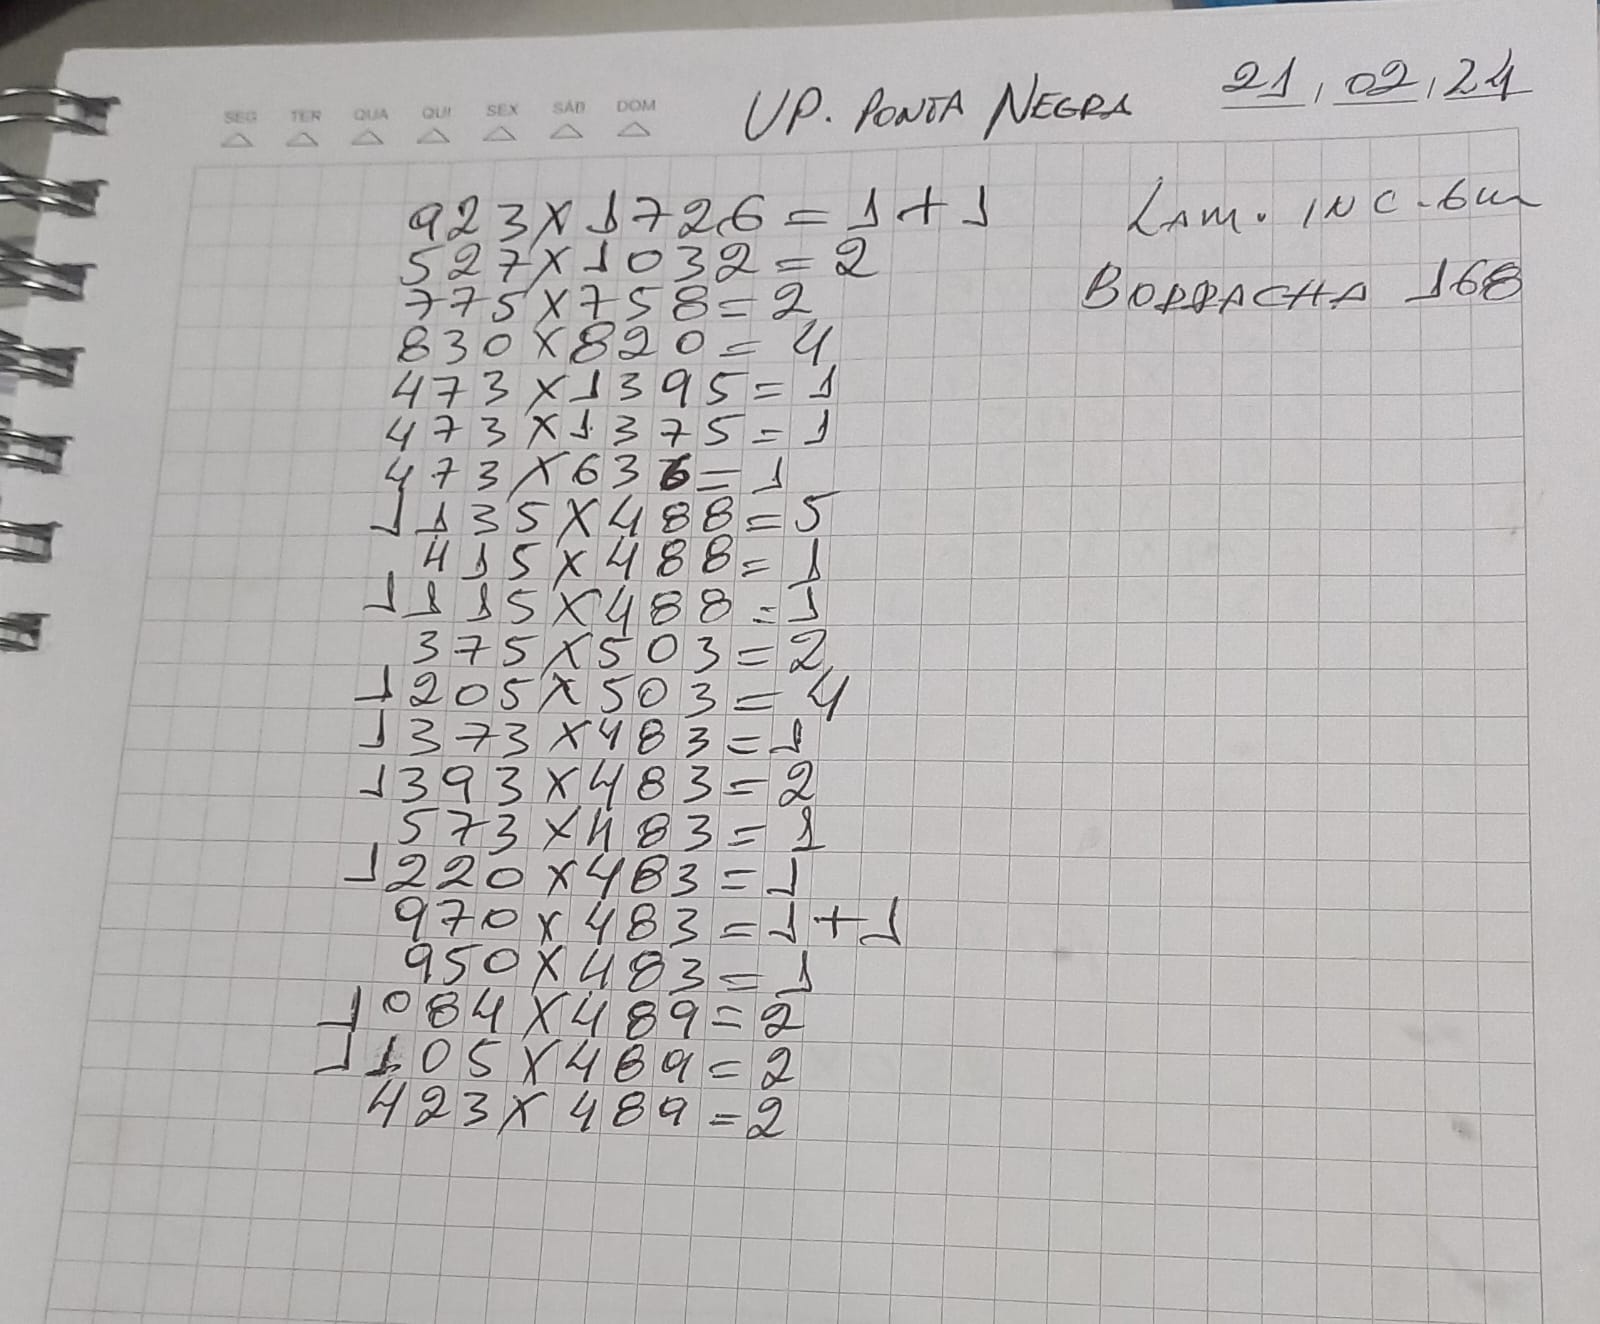 SEG TER QUA QUI SEX SÁB DOM
UP. PONTA NEGRA 21, 02, 24
923x1726=1+1
LAM. INC. 6M
527x1032=2
BORRACHA 168
775x758=2
830x820=4
473x1395=1
473x1375=1
473x636=1
1135x488=5
415x488=1
1115x488=1
375x503=2
1205x503=4
1373x483=1
1393x483=2
573x483=1
1220x483=1
970x483=1+1
950x483=1
1084x489=2
1105x489=2
423x489=2